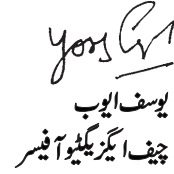 یوسف ایوب
چیف ایگزیگٹیو آفیسر